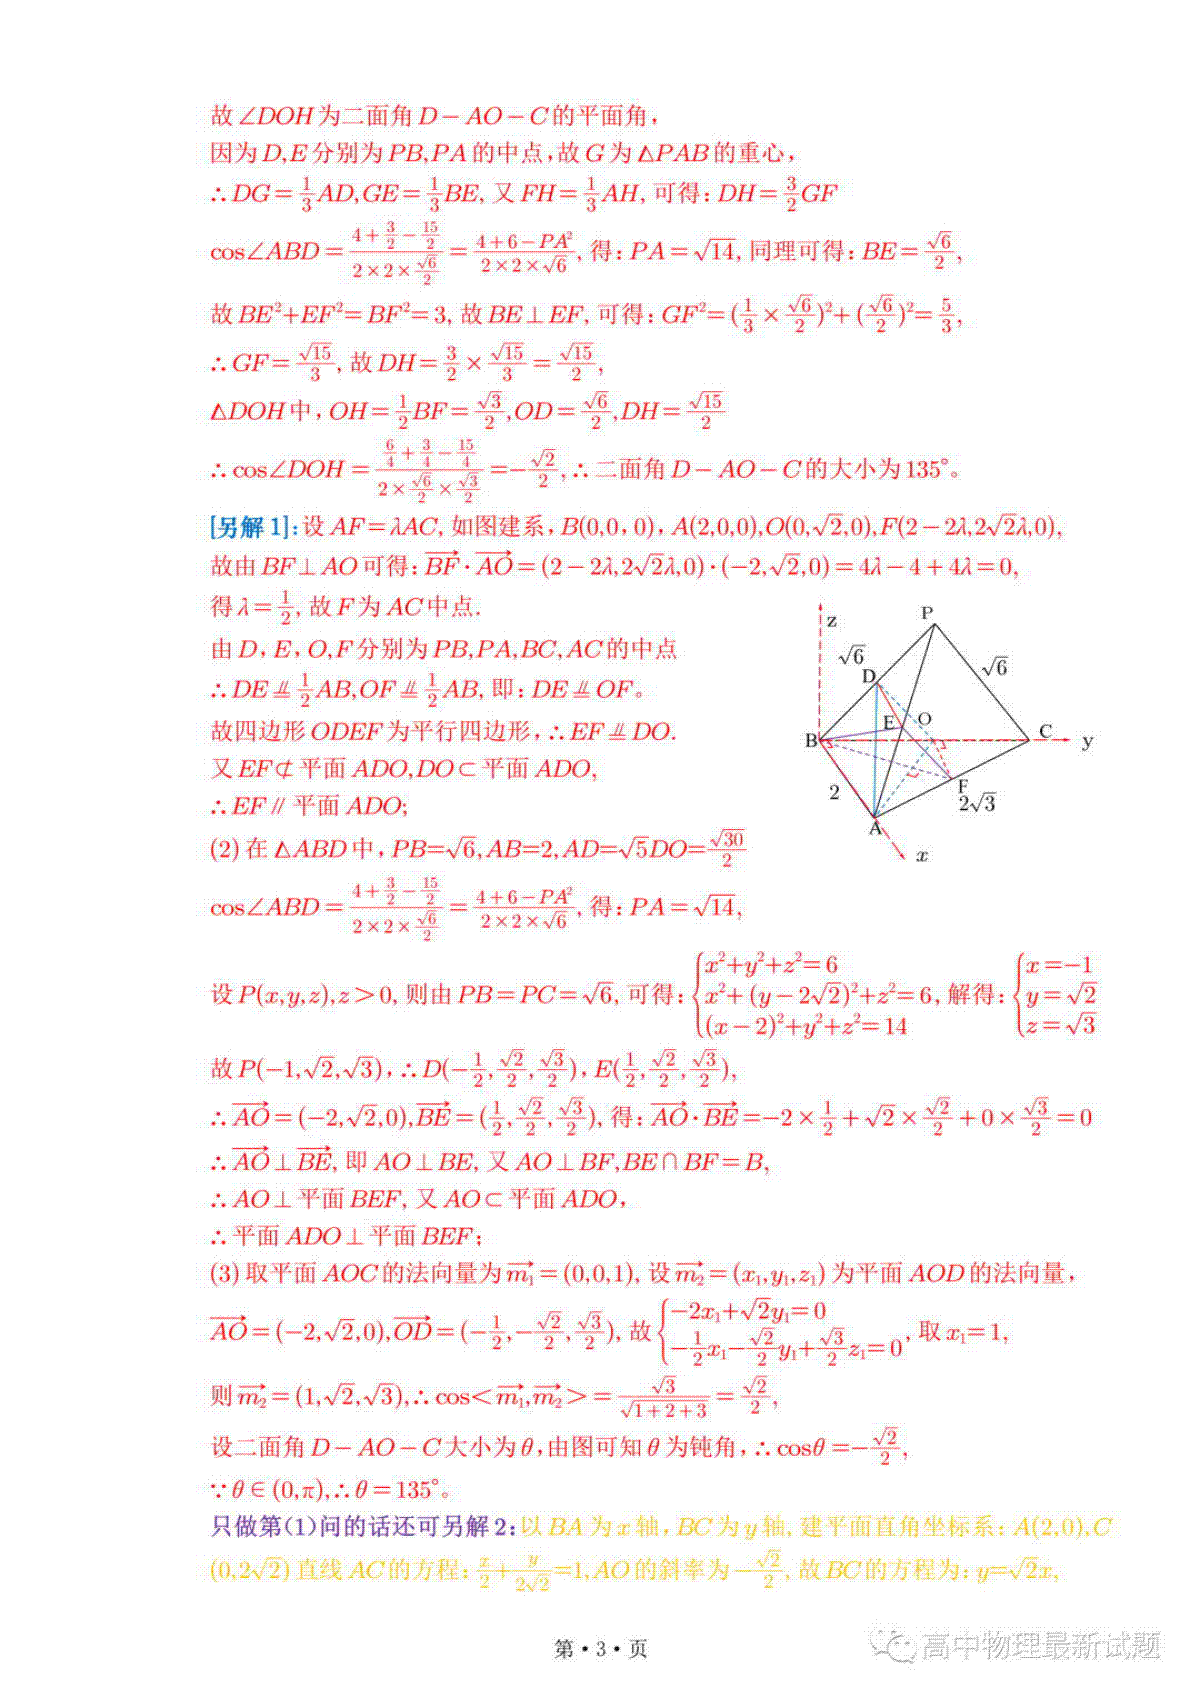 故∠DOH为二面角D-AO-C的平面角,
因为D,E分别为PB,PA的中点,故G为△PAB的重心,
∴DG=1/3AD,GE=1/3BE,又FH=1/3AH,可得:DH=3/2GF
cos∠ABD=(4+3/2-15/2)/(2×2×√6/2)=(4+6-PA²)/(2×2×√6),得:PA=√14,同理可得:BE=√6/2,
故BE²+EF²=BF²=3,故BE⊥EF,可得:GF²=(1/3×√6/2)²+(√6/2)²=5/3,
∴GF=√15/3,故DH=3/2×√15/3=√15/2,
△DOH中,OH=1/2BF=√3/2,OD=√6/2,DH=√15/2
∴cos∠DOH=(6/4+3/4-15/4)/(2×√6/2×√3/2)=-√2/2,∴二面角D-AO-C的大小为135°。
[另解1]:设AF=λAC,如图建系,B(0,0,0),A(2,0,0),O(0,√2,0),F(2-2λ,2√2λ,0),
故由BF⊥AO可得:BF→·AO→=(2-2λ,2√2λ,0)·(-2,√2,0)=4λ-4+4λ=0,
得λ=1/2,故F为AC中点.
由D,E,O,F分别为PB,PA,BC,AC的中点
∴DE⫫1/2AB,OF⫫1/2AB,即:DE⫫OF。
故四边形ODEF为平行四边形,∴EF⫫DO.
又EF⊄平面ADO,DO⊂平面ADO,
∴EF∥平面ADO;
z
P
√6
√6
D
E
O
B
C
y
2
F
2√3
A
x
(2)在△ABD中,PB=√6,AB=2,AD=√5DO=√30/2
cos∠ABD=(4+3/2-15/2)/(2×2×√6/2)=(4+6-PA²)/(2×2×√6),得:PA=√14,
设P(x,y,z),z>0,则由PB=PC=√6,可得:{x²+y²+z²=6 x²+(y-2√2)²+z²=6 (x-2)²+y²+z²=14,解得:{x=-1 y=√2 z=√3
故P(-1,√2,√3),∴D(-1/2,√2/2,√3/2),E(1/2,√2/2,√3/2),
∴AO→=(-2,√2,0),BE→=(1/2,√2/2,√3/2),得:AO→·BE→=-2×1/2+√2×√2/2+0×√3/2=0
∴AO→⊥BE→,即AO⊥BE,又AO⊥BF,BE∩BF=B,
∴AO⊥平面BEF,又AO⊂平面ADO,
∴平面ADO⊥平面BEF;
(3)取平面AOC的法向量为m₁→=(0,0,1),设m₂→=(x₁,y₁,z₁)为平面AOD的法向量,
AO→=(-2,√2,0),OD→=(-1/2,-√2/2,√3/2),故{-2x₁+√2y₁=0 -1/2x₁-√2/2y₁+√3/2z₁=0,取x₁=1,
则m₂→=(1,√2,√3),∴cos<m₁→,m₂→>=√3/√(1+2+3)=√2/2,
设二面角D-AO-C大小为θ,由图可知θ为钝角,∴cosθ=-√2/2,
∵θ∈(0,π),∴θ=135°。
只做第(1)问的话还可另解2:以BA为x轴,BC为y轴,建平面直角坐标系:A(2,0),C
(0,2√2)直线AC的方程:x/2+y/2√2=1,AO的斜率为-√2/2,故BC的方程为:y=√2x,
第·3·页
高中物理最新试题